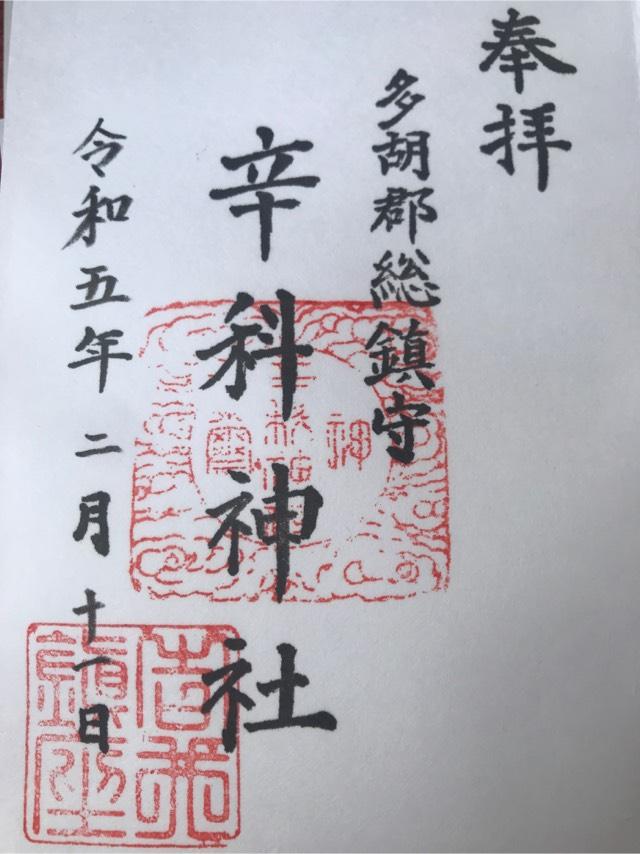 奉拝
多胡郡総鎮守
辛科神社
令和五年二月十一日